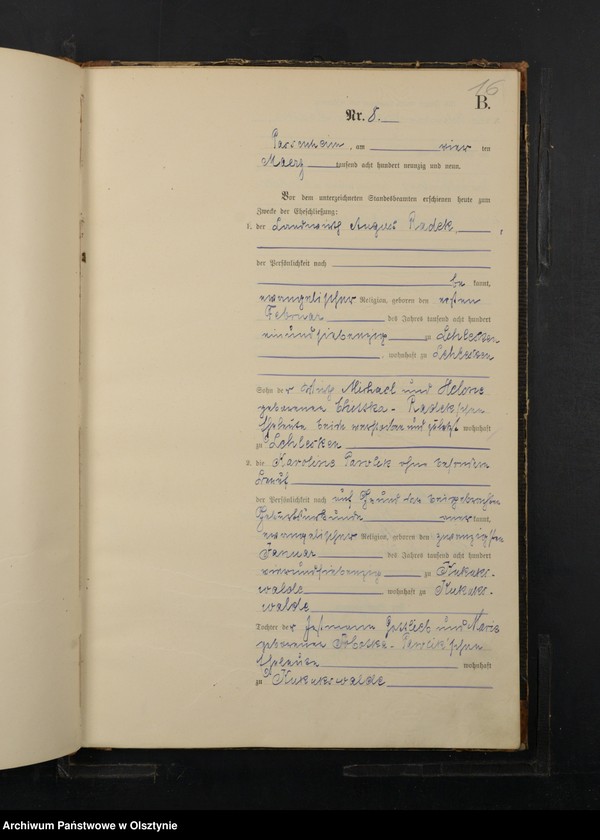 16
B.
Nr. 8.
Passenheim, am vier ten
Maerz tausend acht hundert neunzig und neun.
Vor dem unterzeichneten Standesbeamten erschienen heute zum
Zwecke der Eheschließung:
1. der Landwirth August Radek,
der Persönlichkeit nach
be kannt,
evangelischer Religion, geboren den ersten
Februar des Jahres tausend acht hundert
einundsiebenzig zu Schlecken
, wohnhaft zu Schlecken
Sohn der Wirth Michael und Helene
geborenen - Radek'schen
Eheleute beide verstorben und zuletzt wohnhaft
zu Schlecken
2. die Karoline Pawlik ohne besonderen
Beruf
der Persönlichkeit nach auf Grund der beigebrachten
Geburtsurkunde aner kannt,
evangelischer Religion, geboren den zwanzigsten
Januar des Jahres tausend acht hundert
vierundsiebenzig zu Kukuks-
walde, wohnhaft zu Kukuks-
walde
Tochter der Gottlieb und Marie
geborenen Sobottka - Pawlik'schen
Eheleute wohnhaft
zu Kukukswalde
Archiwum Państwowe w Olsztynie